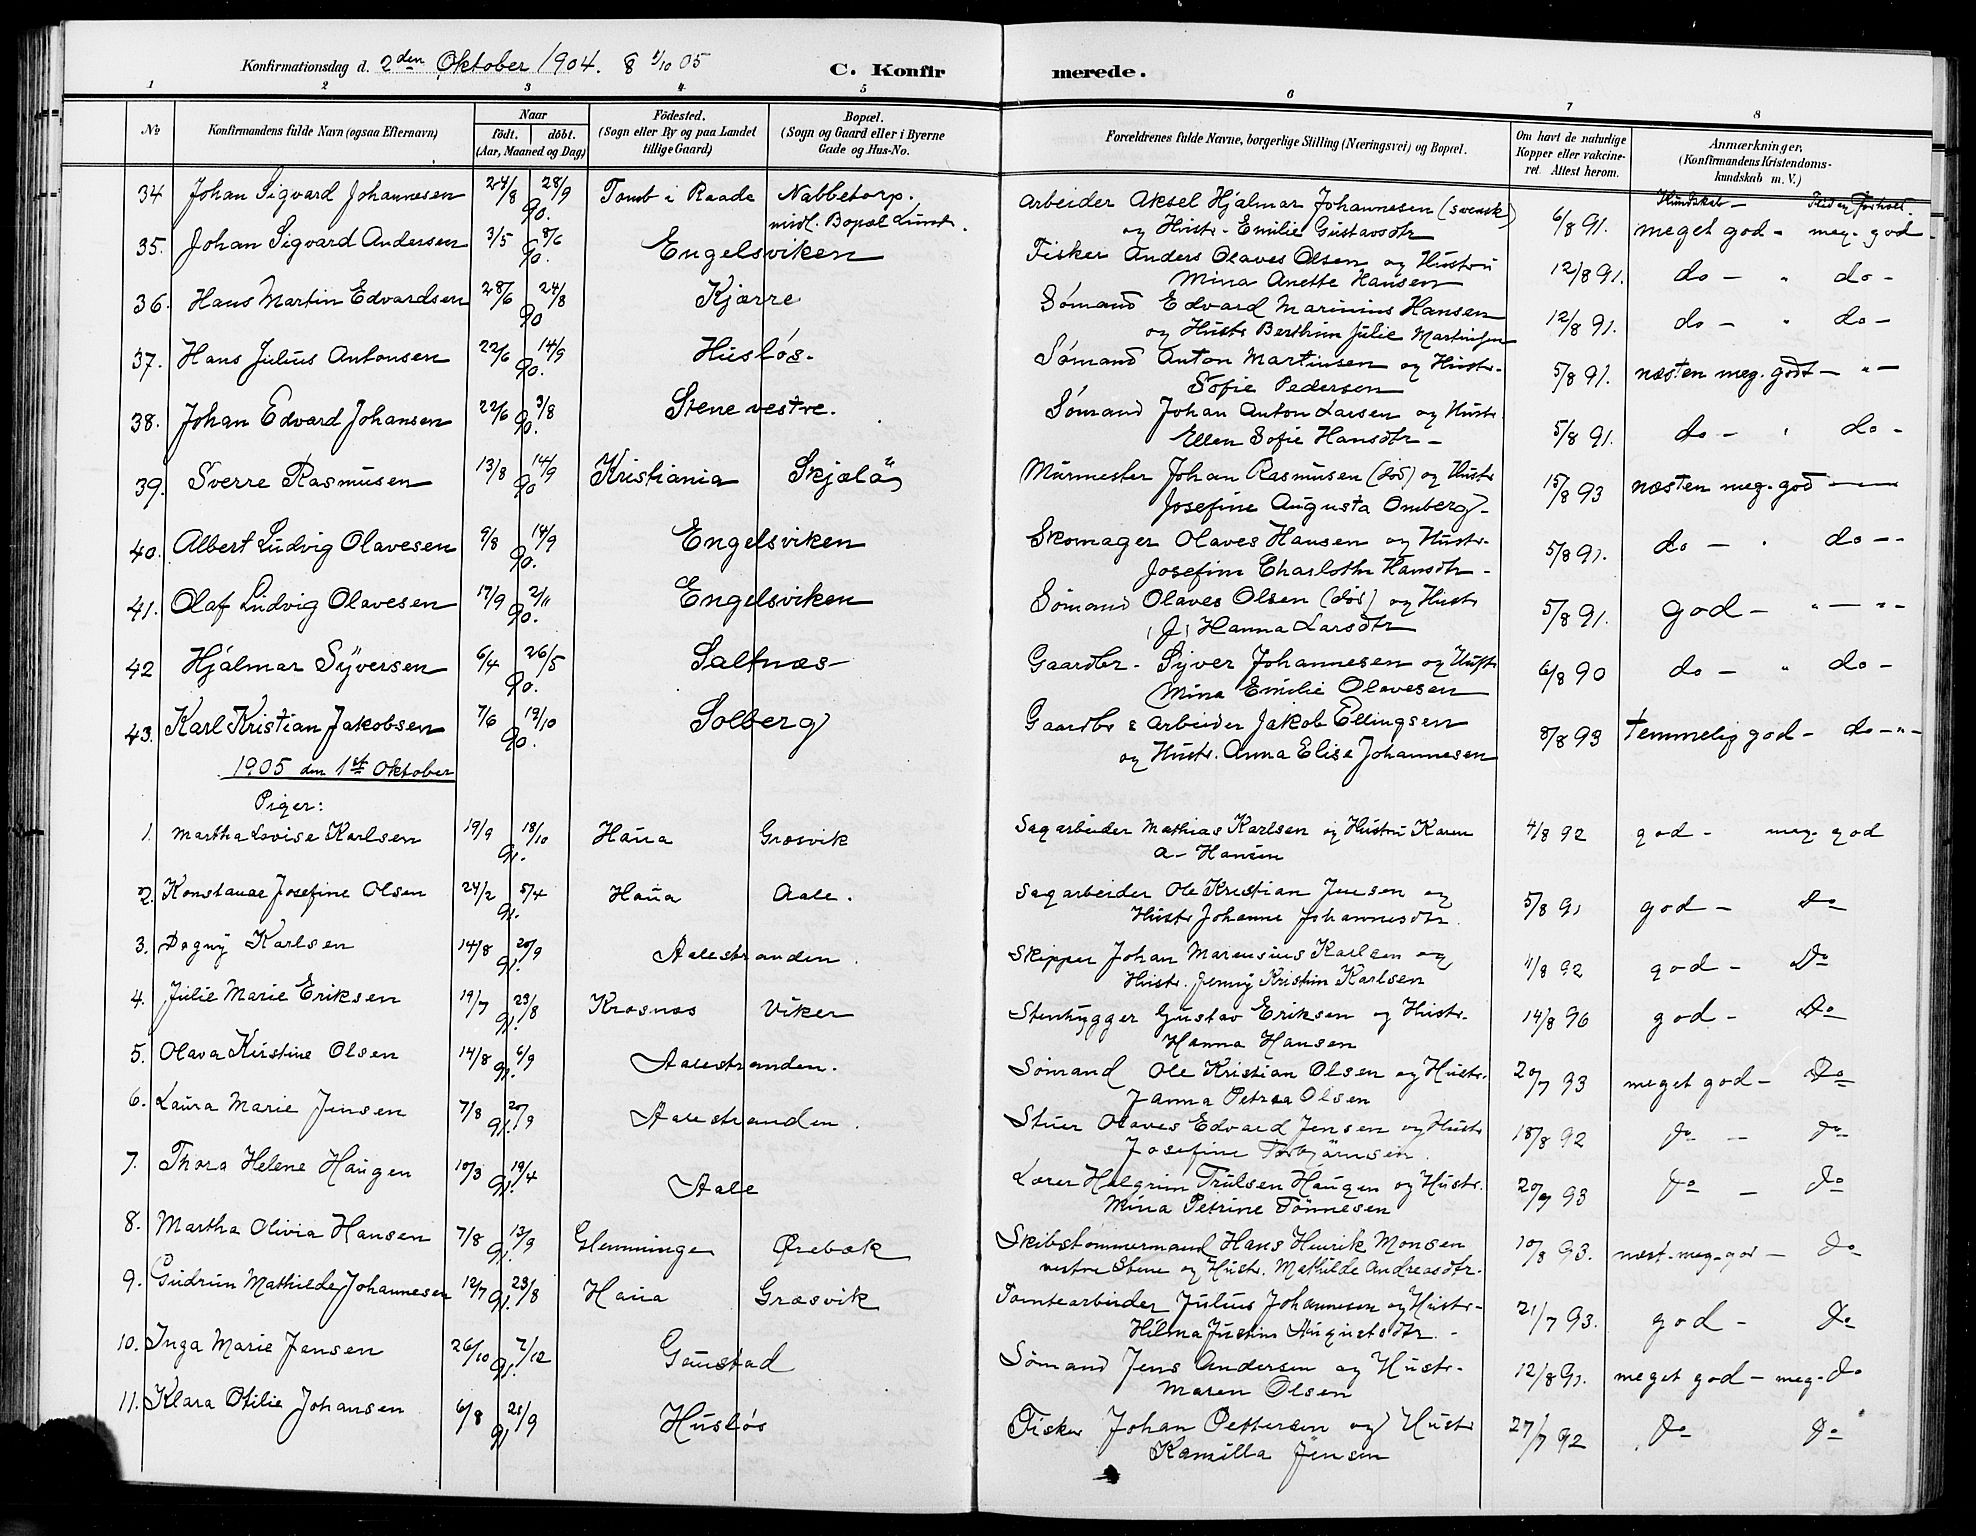 Konfirmationsdag d. 2den Oktober 1904. & 1/10 05 C. Konfirmerede.
1 2 3 4 5 6 7 8
No
Konfirmandens fulde Navn (ogsaa Efternavn)
Naar
født. døbt.
(Aar, Maaned og Dag)
Fødested.
(Sogn eller By og paa Landet
tillige Gaard)
Bopæl.
(Sogn og Gaard eller i Byerne
Gade og Hus-No.
Forældrenes fulde Navne, borgerlige Stilling (Næringsvei) og Bopæl.
Om havt de naturlige
Kopper eller vakcine-
ret. Attest herom.
Anmærkninger,
(Konfirmandens Kristendoms-
kundskab m. V.)
Kundskab -
34 Johan Sigvard Johannesen 24/8 28/9 90. Tomb i Raade Nabbetorp. Arbeider Aksel Hjalmar Johannesen (svensk) 6/8 91. meget god - meg. god -
midl. Bopæl Lund. og Hustr. Emilie Gustavsdtr
35. Johan Sigvard Andersen 3/5 8/6 90. Engelsviken Fisker Anders Olaves Olsen og Hustru 12/8 91. do - " do -
Mina Anette Hansen
36. Hans Martin Edvardsen 28/6 24/8 90 Kjærre Sømand Edvard Marinius Hansen 12/8 91. do - " do -
og Hustr Berthine Julie Martinsen
37. Hans Julius Antonsen 22/6 14/9 90. Husløs. Sømand Anton Martinsen og Hustr. 5/8 91. næsten meg. godt - " -
Sofie Pedersen
38. Johan Edvard Johansen 22/6 3/8 90. Stene vestre. Sømand Johan Anton Larsen og Hustr 5/8 91. do - " do -
Ellen Sofie Hansdtr -
39. Sverre Rasmusen 13/8 14/9 90 Kristiania Skjælø Murmester Johan Rasmusen (død) og Hustr 15/8 93 næsten meg. god
Josefine Augusta Omberg -
40. Albert Ludvig Olavesen 9/8 14/9 90. Engelsviken Skomager Olaves Hansen og Hustr. 5/8 91. do - " do --
Josefine Charlothe Hansdtr -
41. Olaf Ludvig Olavesen 17/9 2/11 90. Engelsviken Sømand Olaves Olsen (død) og Hustr 5/8 91. god - " - " -
(J) Hanna Larsdtr
42 Hjalmar Syversen 6/4 26/5 90. Saltnæs Gaardbr. Syver Johannesen og Hustr 6/8 90 do - " do -
Mina Emilie Olavesen
43. Karl Kristian Jakobsen 7/6 19/10 90. Solberg Gaardbr & Arbeider Jakob Ellingsen 8/8 93 temmelig god - do - " -
og Hustr. Anna Elise Johannesen
1905 den 1st Oktober
Piger:
1. Martha Lovise Karlsen 19/9 18/10 91. Haua Græsvik Sagarbeider Mathias Karlsen og Hustru Karen 4/8 92 god - meg. god
A- Hansen
2. Konstanse Josefine Olsen 24/2 5/4 91. Haua Aale. Sagarbeider Ole Kristian Jensen og 5/8 91 god - Do
Hustr Johanne Johannesdtr.
3. Dagny Karlsen 14/8 20/9 91. Aalestranden. Skipper Johan Marensius Karlsen og 4/8 92 god - Do
Hustr. Jenny Kristine Karlsen
4. Julie Marie Eriksen 19/7 23/8 91. Krosnes Viker Stenhugger Gustav Eriksen og Hustr. 14/8 96 god - Do
Hanna Hansen
5. Olava Kristine Olsen 14/8 6/9 91. Aalestranden. Sømand Ole Kristian Olsen og Hustr. 20/7 93 meget god - Do
Janna Petrea Olsen
6. Laura Marie Jensen 7/8 20/9 91. Aalestranden. Stuer Olaves Edvard Jensen og Hustr 18/8 92 Do - Do
Josefine Torbjørnsen.
7. Thora Helene Haugen 10/3 19/4 91. Aale Lærer Halgrim Trulsen Haugen og Hustr. 20/7 93 Do - Do
Mina Petrine Tønnesen
8. Martha Olivia Hansen 7/8 13/9 91. Glemminge Ørebæk Skibstømmermand Hans Henrik Monsen 10/8 93. næst. meg. god - Do
vestre Stene og Hustr. Mathilde Andreasdtr.
9. Gudrun Mathilde Johannesen 12/7 23/8 91. Haua Græsvik Tomtearbeider Julius Johannesen og Hustr. 21/7 93. god - Do
Hilma Justine Augustsdtr. -
10. Inga Marie Jensen 26/10 7/12 91. Gaustad Sømand Jens Andersen og Hustr. 12/8 91. meget god - meg. Do
Maren Olsen
11. Klara Otilie Johansen 6/8 21/9 91. Husløs Fisker Johan Pettersen og Hustr 27/7 92 Do Do
Kamilla Jensen